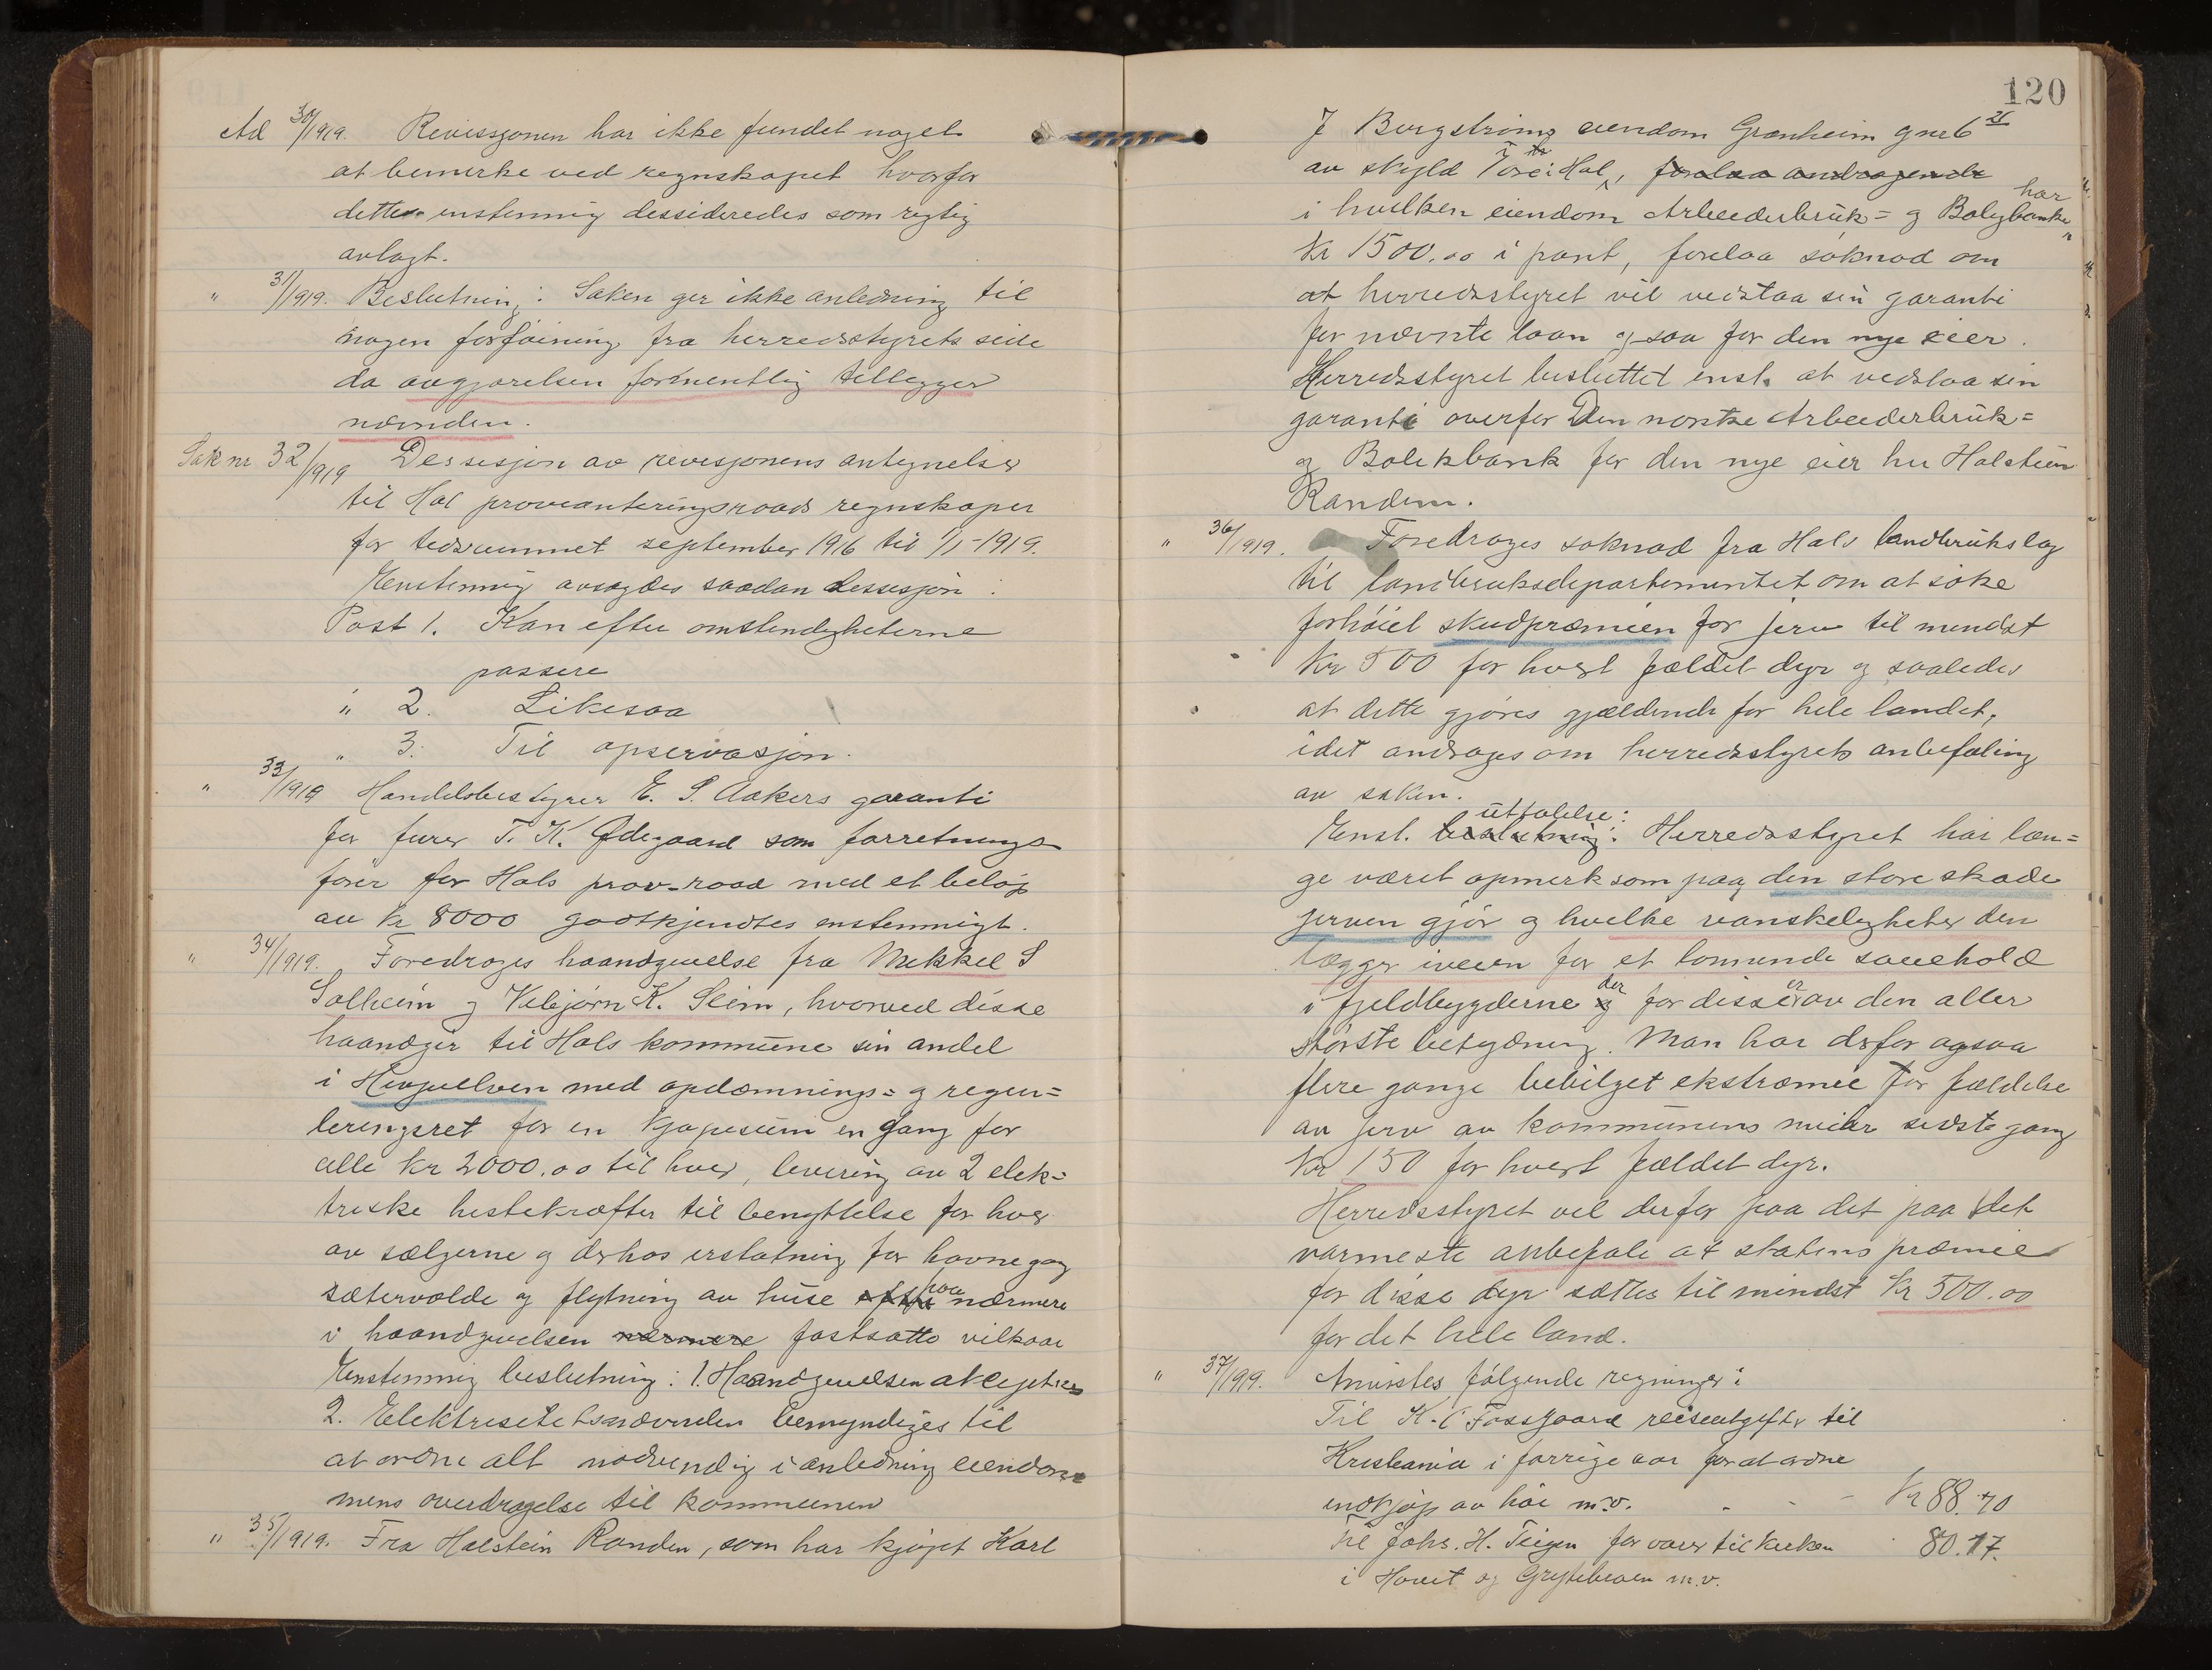 Ad 30/1919. Revissjonen har ikke fundet noget
at bemerke ved regnskapet hvorfor
dette enstemmig dessideredes som rigtig
avlagt.
" 31/1919. Beslutning: Saken ger ikke anledning til
nogen forføining fra herredsstyrets side
da avgjørelsen formentlig tillegger
nævnden.
Sak nr 32/1919 Dessisjon av revisjonens antegnelser
til Hol provianteringsraads regnskaper
for tidsrummet september 1916 til 1/1-1919.
Enstemmig avsagdes saadan dessisjon:
Post 1. Kan efter omstendigheterne
passere
" 2. Likesaa
" 3. Til opservasjon.
" 33/1919 Handelsbestyrer E. S. Aakers garanti
for furer T. K. Ødegaard som forretnings
fører for Hols prov-raad med et beløp
av kr 8000 godtkjendtes enstemmigt.
" 34/1919. Foredroges haandgivelse fra Mekkel S
Solheim og Vebjørn K. Seim, hvorved disse
haandgir til Hols kommune sin andel
i Hivjuelven med opdæmnings= og regu=
leringsret for en kjøpesum en gang for
alle kr 2000.00 til hver, levering av 2 elek=
triske hestekræfter til benyttelse for hver
av sælgerne og derhos erstatning for havnegang
sætervolde og flytning av huse paa nærmere
i haandgivelsen nærmere fastsatte vilkaar
Enstemmig beslutning: 1. Haandgivelsen aksepteres
2. Elektrisitetsnævnden bemyndiges til
at ordne alt nødvendig i anledning eiendom
mens overdragelse til kommunen
" 35/1919. Fra Halstein Randen, som har kjøpt Karl
120
J Bergstrøms eiendom Grønheim gnr 6 21
av skyld 1 øre i Hol, forelaa andragende
i hvilken eiendom Arbeiderbruk= og Boligbanken har
Kr 1500.00 i pant, forelaa søknad om
at herredsstyret vil vedstaa sin garanti
for nævnte laan ogsaa for den nye eier.
Herredsstyret besluttet enst. at vedstaa sin
garanti overfor Den norske Arbeiderbruk=
og Bolikbank for den nye eier hr Halstein
Randen.
" 36/1919. Foredroges søknad fra Hols landbrukslag
til landbruksdepartementet om at søke
forhøiet skudpræmien for jerv til mindst
Kr 500 for hvert fældet dyr og saaledes
at dette gjøres gjældende for hele landet,
idet androges om herredsstyrets anbefaling
av saken.
uttalelse:
Enst. beslutning: Herredsstyret har læn=
ge været opmerksom paa den store skade
jerven gjør og hvilke vanskeligheter den
lægger iveien for et lønnende sauehold
i fjeldbygderne der for disse er av den aller
største betydning. Man har derfor ogsaa
flere gange bevilget ekstræmie for fældelse
av jerv av kommunens midler sidste gang
Kr 150 for hvert fældet dyr.
Herredsstyret vil derfor paa det paa det
varmeste anbefale at statens præmie
for disse dyr sættes til mindst Kr 500.00
for det hele land.
" 37/1919. Anvistes følgende regninger:
Til K. C Fossgaard reiseutgifter til
Kristiania i forrige aar for at ordne
indkjøp av høi m.v. - - - Kr 88.70
Til Johs. H. Teigen for varer til kirken 80.17.
i Hovet og m.v.